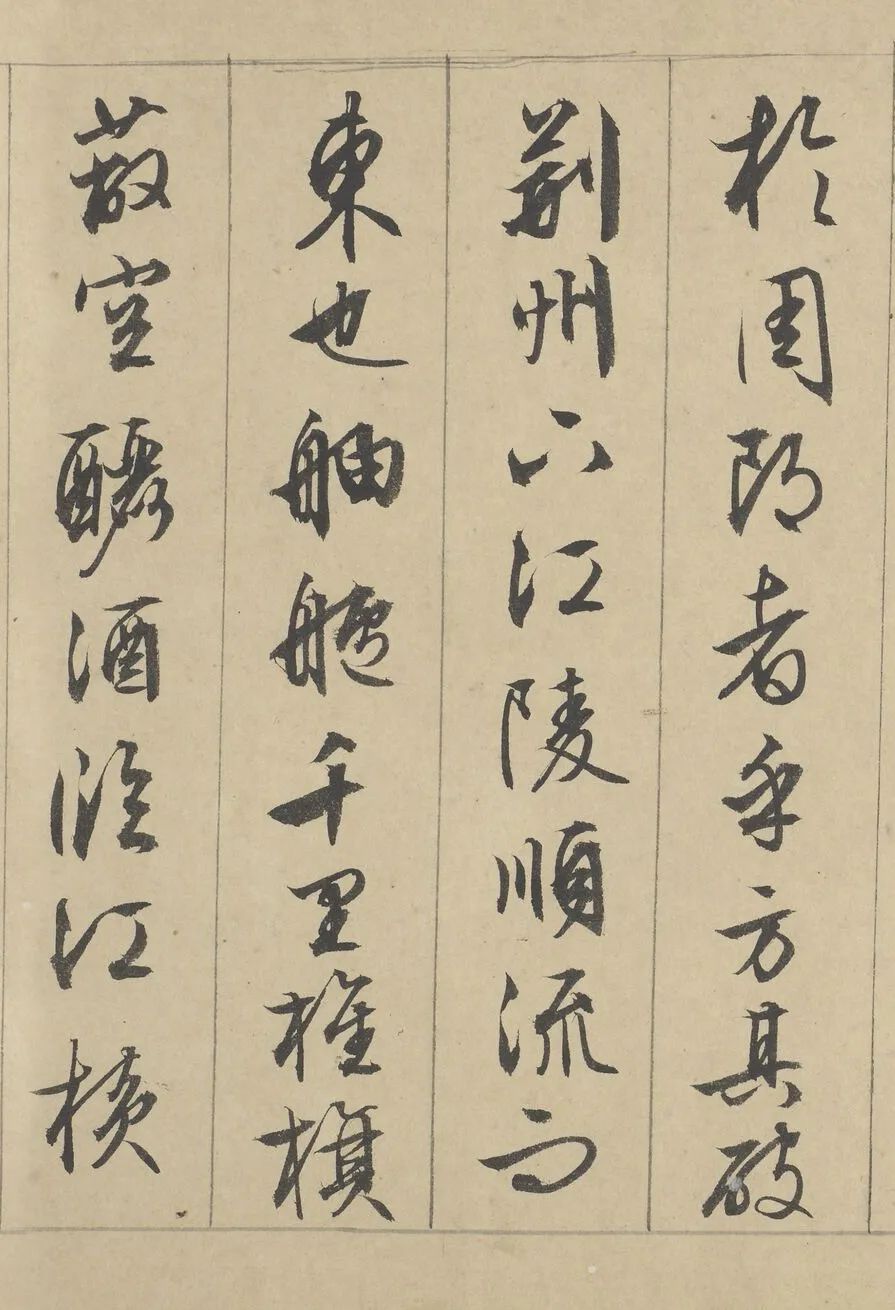 於周郎者乎方其破
荊州下江陵順流而
東也舳艫千里旌旗
蔽空釃酒臨江橫